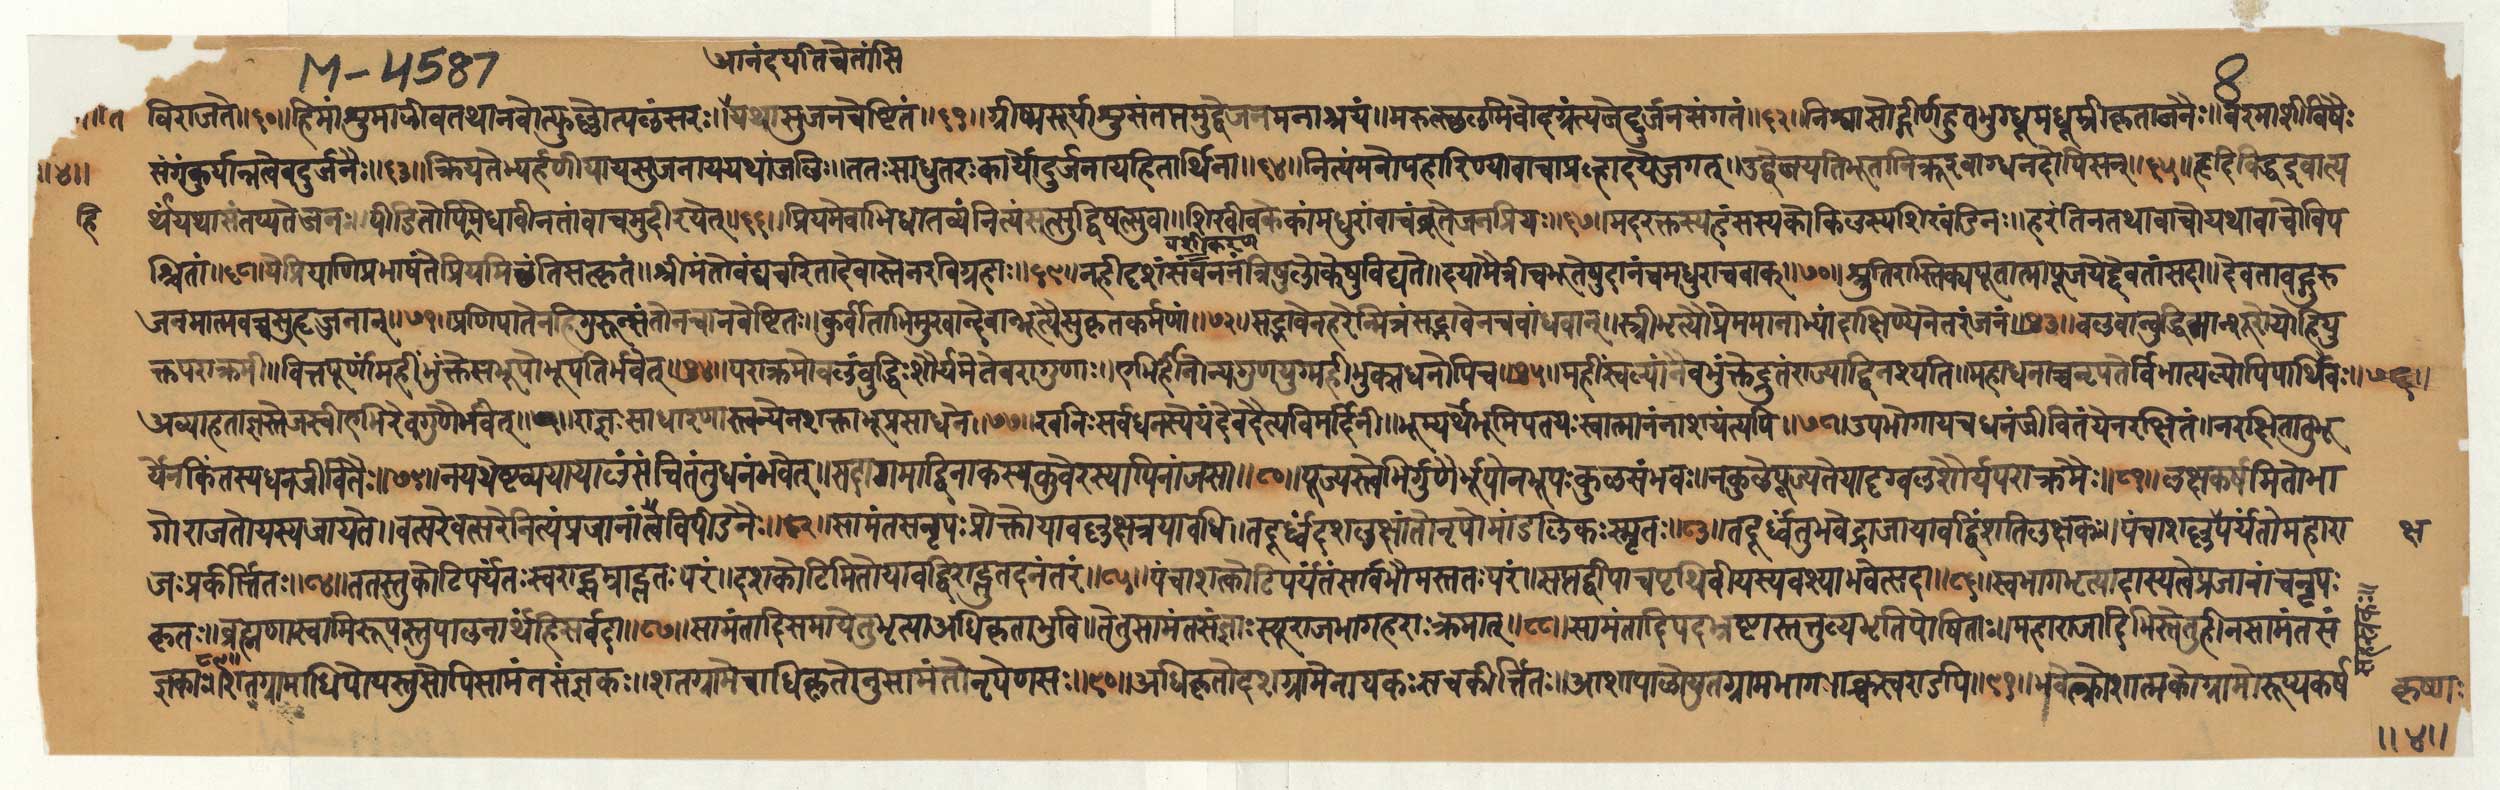 M-4587
आनंदयतिचेतांसि
8
विराजते॥६०॥हिमांशुमालीवतथानवोत्फुल्लोत्पलंसरः॥यथासुजनचेष्टितं॥६१॥ग्रीष्मसूर्यांशुसंतप्तमुद्वेजनमनाश्रयं॥मरुस्थलमिवोदग्रंत्यजेद्दुर्जनसंगतं॥६२॥निश्वासोद्गीर्णहुतभुग्धूमधूम्रीकृताननैः॥वरमाशीविषैः
॥४॥ संगंकुर्यान्नत्वेवदुर्जनैः॥६३॥क्रियतेभ्यर्हणीयायसुजनाययथांजलिः॥ततःसाधुतरःकार्योदुर्जनायहितार्थिना॥६४॥नित्यंमनोपहारिण्यावाचाप्रल्हादयेज्जगत्॥उद्वेजयतिभूतानिक्रूरवाग्धनदोपिसन्॥६५॥हृदिविद्धइवात्य
हि र्थंयथासंतप्यतेजनः॥पीडितोपिमेधावीनतांवाचमुदीरयेत्॥६६॥प्रियमेवाभिधातव्यंनित्यंसत्सुद्विषत्सुवा॥शिखीवकेकांमधुरांवाचंब्रूतेजनप्रियः॥६७॥मदरक्तस्यहंसस्यकोकिलस्यशिखंडिनः॥हरंतिनतथावाचोयथावाचोविप
वशीकरणं
श्चितां॥६८॥येप्रियाणिप्रभाषंतेप्रियमिच्छंतिसत्कृतं॥श्रीमंतोवंद्यचरितादेवास्तेनरविग्रहाः॥६९॥नहीदृशंसंवननंत्रिषुलोकेषुविद्यते॥दयामैत्रीचभूतेषुदानंचमधुराचवाक्॥७०॥श्रुतिरास्तिक्यपूतात्मापूजयेद्देवतांसदा॥देवतावद्गुरु
जनमात्मवच्चसुहृज्जनान्॥७१॥प्रणिपातेनहिगुरून्संतोनचानचेष्टितः॥कुर्वीताभिमुखान्देवान्भूत्यैसुकृतकर्मणां॥७२॥सद्भावेनहरेन्मित्रंसद्भावेनचबांधवान्॥स्त्रीभृत्यौप्रेममानाभ्यांदाक्षिण्येनेतरंजनं॥७३॥बलवान्बुद्धिमान्शूरोयोहियु
क्तपराक्रमी॥वित्तपूर्णांमहींभुंक्तेसभूपोभूपतिर्भवेत्॥७४॥पराक्रमोबलंबुद्धिःशौर्यमेतेवरागुणाः॥एभिर्हीनोन्यगुणयुग्महीभुक्सधनोपिच॥७५॥महींस्वल्पांनैवभुंक्तेद्रुतंराज्याद्विनश्यति॥महाधनाच्चनृपतेर्विभात्यल्पोपिपार्थिवः॥७६॥
अव्याहताज्ञस्तेजस्वीएभिरेवगुणैर्भवेत्॥राज्ञःसाधारणास्त्वन्येनशक्ताभूप्रसाधने॥७७॥खनिःसर्वधनस्येयंदेवदैत्यविमर्दिनी॥भूम्यर्थेभूमिपतयःस्वात्मानंनाशयंत्यपि॥७८॥उपभोगायचधनंजीवितंयेनरक्षितं॥नरक्षितातुभू
र्येनकिंतस्यधनजीवितैः॥७९॥नयथेष्टव्ययायालंसंचितंतुधनंभवेत्॥सदागमाद्विनाकस्यकुबेरस्यापिनांजसा॥८०॥पूज्यस्त्वेभिर्गुणैर्भूपोनभूपःकुलसंभवः॥नकुलेपूज्यतेयादृग्बलशौर्यपराक्रमैः॥८१॥लक्षकर्षमितोभा
गोराजतोयस्यजायते॥वत्सरेवत्सरेनित्यंप्रजानांत्वविपीडनैः॥८२॥सामंतसनृपःप्रोक्तोयावल्लक्षत्रयावधि॥तदूर्ध्वंदशलक्षांतोनृपोमांडलिकःस्मृतः॥८३॥तदूर्ध्वंतुभवेद्राजायावद्विंशतिलक्षकः॥पंचाशल्लपर्यंतोमहारा क्ष
जःप्रकीर्त्तितः॥८४॥ततस्तुकोटिपर्यंतःस्वराट्सम्राट्ततःपरं॥दशकोटिमितोयावद्विराट्तुतदनंतरं॥८५॥पंचाशत्कोटिपर्यंतंसार्वभौमस्ततःपरं॥सप्तद्वीपाचपृथिवीयस्यवश्याभवेत्सदा॥८६॥स्वभागभृत्यादास्यत्वेप्रजानांचनृपः
कृतः॥ब्रह्मणास्वामिरूपस्तुपालनार्थंहिसर्वदा॥८७॥सामंतादिसमायेतुभृत्याअधिकृताभुवि॥तेतुसामंतसंज्ञाःस्यूराजभागहराःक्रमात्॥८८॥सामंतादिपदभ्रष्टास्तत्तुल्यभृतिपोषिताः॥महाराजादिभिस्तेतुहीनसामंतसं
ज्ञकाः॥८९॥शतग्रामाधिपोयस्तुसोपिसामंतसंज्ञकः॥शतग्रामेचाधिकृतोनुसामंतोनृपेणसः॥९०॥अधिकृतोदशग्रामेनायकःसचकीर्त्तितः॥आशापालोयुतग्रामभागभाक्चस्वराडपि॥९१॥भवेत्क्रोशात्मकोग्रामोरूप्यकर्ष
॥४॥